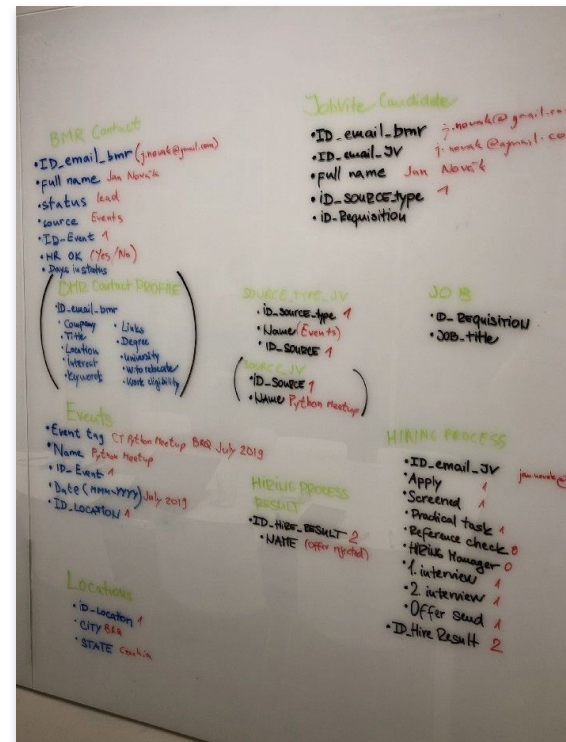 BMR Contact
• ID_email_bmr (j.novak@gmail.com)
• Full name Jan Novák
• status lead
• source Events
• ID-Event 1
• HR OK (Yes/No)
• Days in status
BMR Contact PROFILE
• ID_email_bmr
• Company
• Title
• Location
• Interest
• Keywords
• Links
• Degree
• university
• W. to relocate
• Work eligibility
Events
• Event tag CT Python Meetup BRQ July 2019
• Name Python Meetup
• ID_Event 1
• Date (MMM-YYYY) July 2019
• ID_LOCATION 1
Locations
• ID-Location 1
• CITY BRQ
• STATE Czechia
Jobvite Candidate
• ID_email_bmr j.novak@gmail.co
• ID_email_JV
• Full name Jan Novák
• iD_SOURCE_type 1
• iD-Requisition
SOURCE_TYPE_JV
• iD_source_type 1
• Name (Events)
• ID_SOURCE 1
SOURCE_JV
• ID_SOURCE 1
• NAME Python Meetup
JOB
• ID_REquisition
• JOB_title
HIRING PROCESS RESULT
• ID_HIRE_RESULT 2
• NAME (offer rejected)
HIRING PROCESS
• ID_email_JV jan.novak@
• Apply 1
• Screened 1
• Practical task 1
• Reference check 0
• HIRING Manager 0
• 1. interview 1
• 2. interview 1
• Offer send 1
• ID_Hire Result 2